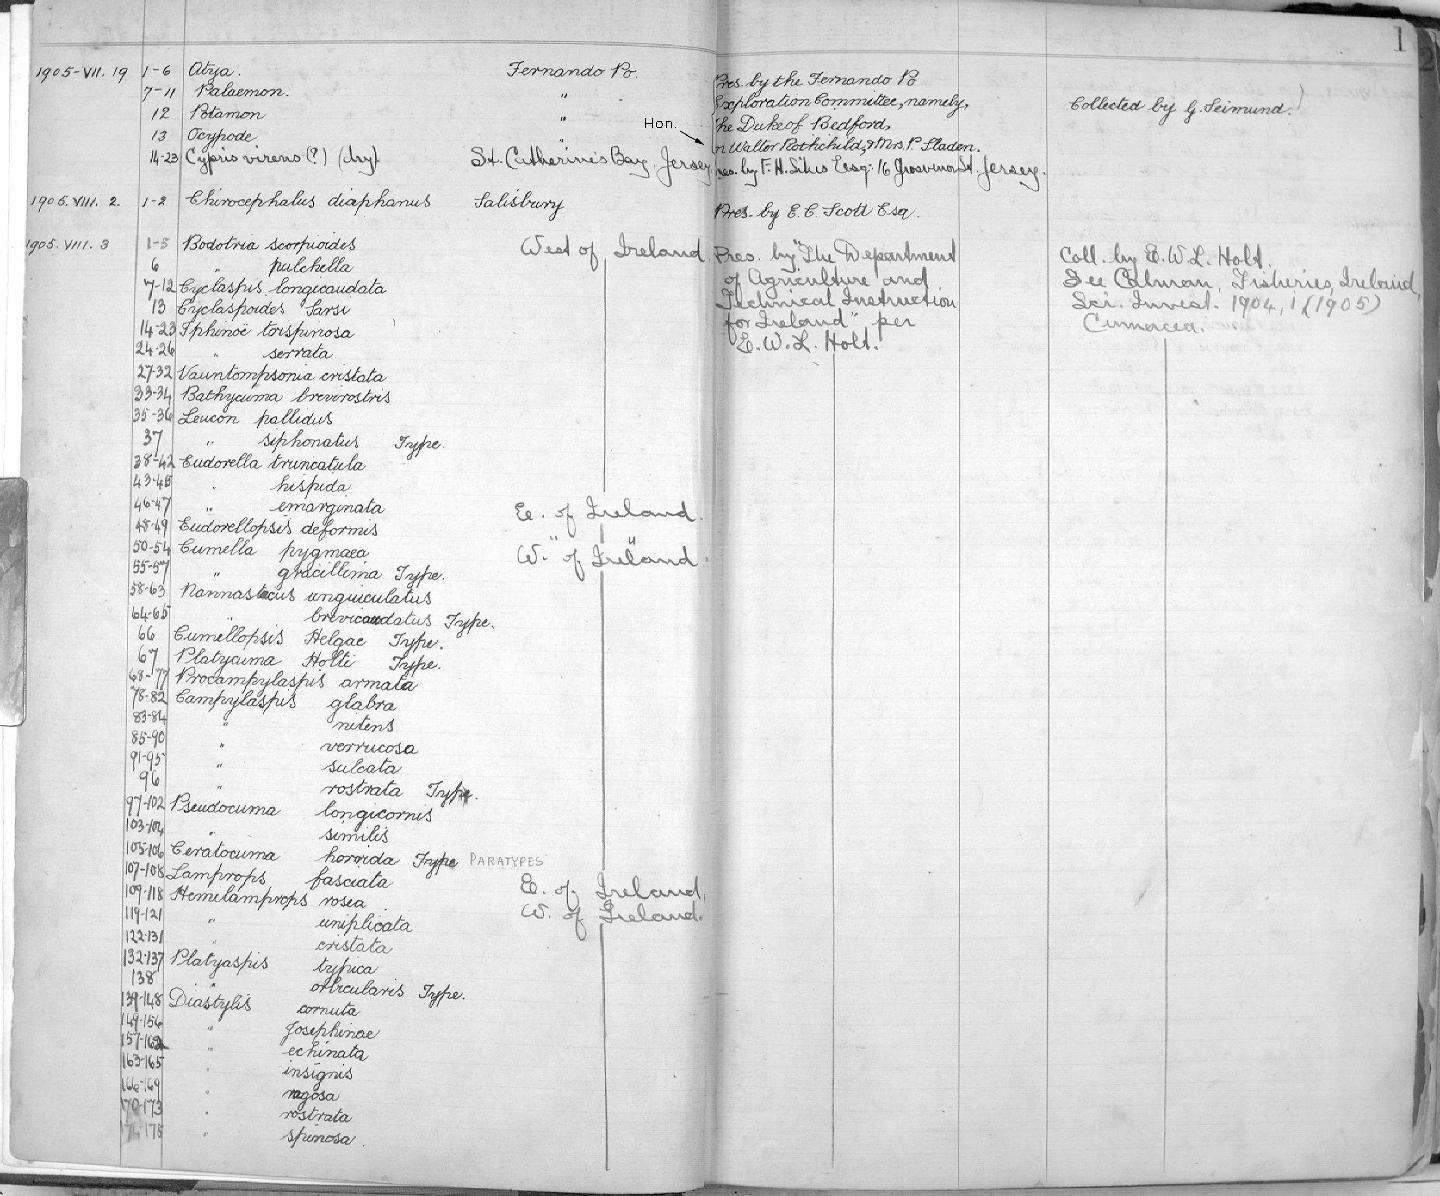 1
1905-VII. 19 1-6 Atya. Fernando Po. Pres. by the Fernando Po
7-11 Palaemon. " Exploration Committee, namely, Collected by G. Seimund.
12 Potamon " the Duke of Bedford,
13 Ocypode " Hon. Walter Rothchild, & Mrs. P. Sladen.
14-23 Cypris virens (?) (dry) St. Catherine's Bay, Jersey Pres. by F. H. Sikes Esq: 16 Grosvenor St. Jersey.
1905. VIII. 2. 1-2 Chirocephalus diaphanus Salisbury Pres. by E. C. Scott Esq.
1905. VIII. 3 1-5 Bodotria scorpioides West of Ireland Pres. by "The Department Coll. by E. W. L. Holt.
6 " pulchella of Agriculture and See Calman, Fisheries, Ireland,
7-12 Cyclaspis longicaudata Technical Instruction Sci. Invest. 1904, 1 (1905)
13 Cyclaspoides Sarsi for Ireland" per Cumacea.
14-23 Iphinoë trispinosa E. W. L. Holt.
24-26 " serrata
27-32 Vauntompsonia cristata
33-34 Bathycuma brevirostris
35-36 Leucon pallidus
37 " siphonatus Type.
38-42 Eudorella truncatula
43-45 " hispida
46-47 " emarginata E. of Ireland.
48-49 Eudorellopsis deformis " "
50-54 Cumella pygmaea W. of Ireland.
55-57 " gracillima Type.
58-63 Nannastacus unguiculatus
64-65 " brevicaudatus Type.
66 Cumellopsis Helgae Type.
67 Platycuma Holti Type.
68-77 Procampylaspis armata
78-82 Campylaspis glabra
83-84 " nitens
85-90 " verrucosa
91-95 " sulcata
96 " rostrata Type.
97-102 Pseudocuma longicornis
103-104 " similis
105-106 Ceratocuma horrida Type PARATYPES
107-108 Lamprops fasciata E. of Ireland.
109-118 Hemilamprops rosea W. of Ireland.
119-121 " uniplicata
122-131 " cristata
132-137 Platyaspis typica
138 " orbicularis Type.
139-148 Diastylis cornuta
149-156 " Josephinae
157-162 " echinata
163-165 " insignis
166-169 " rugosa
170-173 " rostrata
174-175 " spinosa.